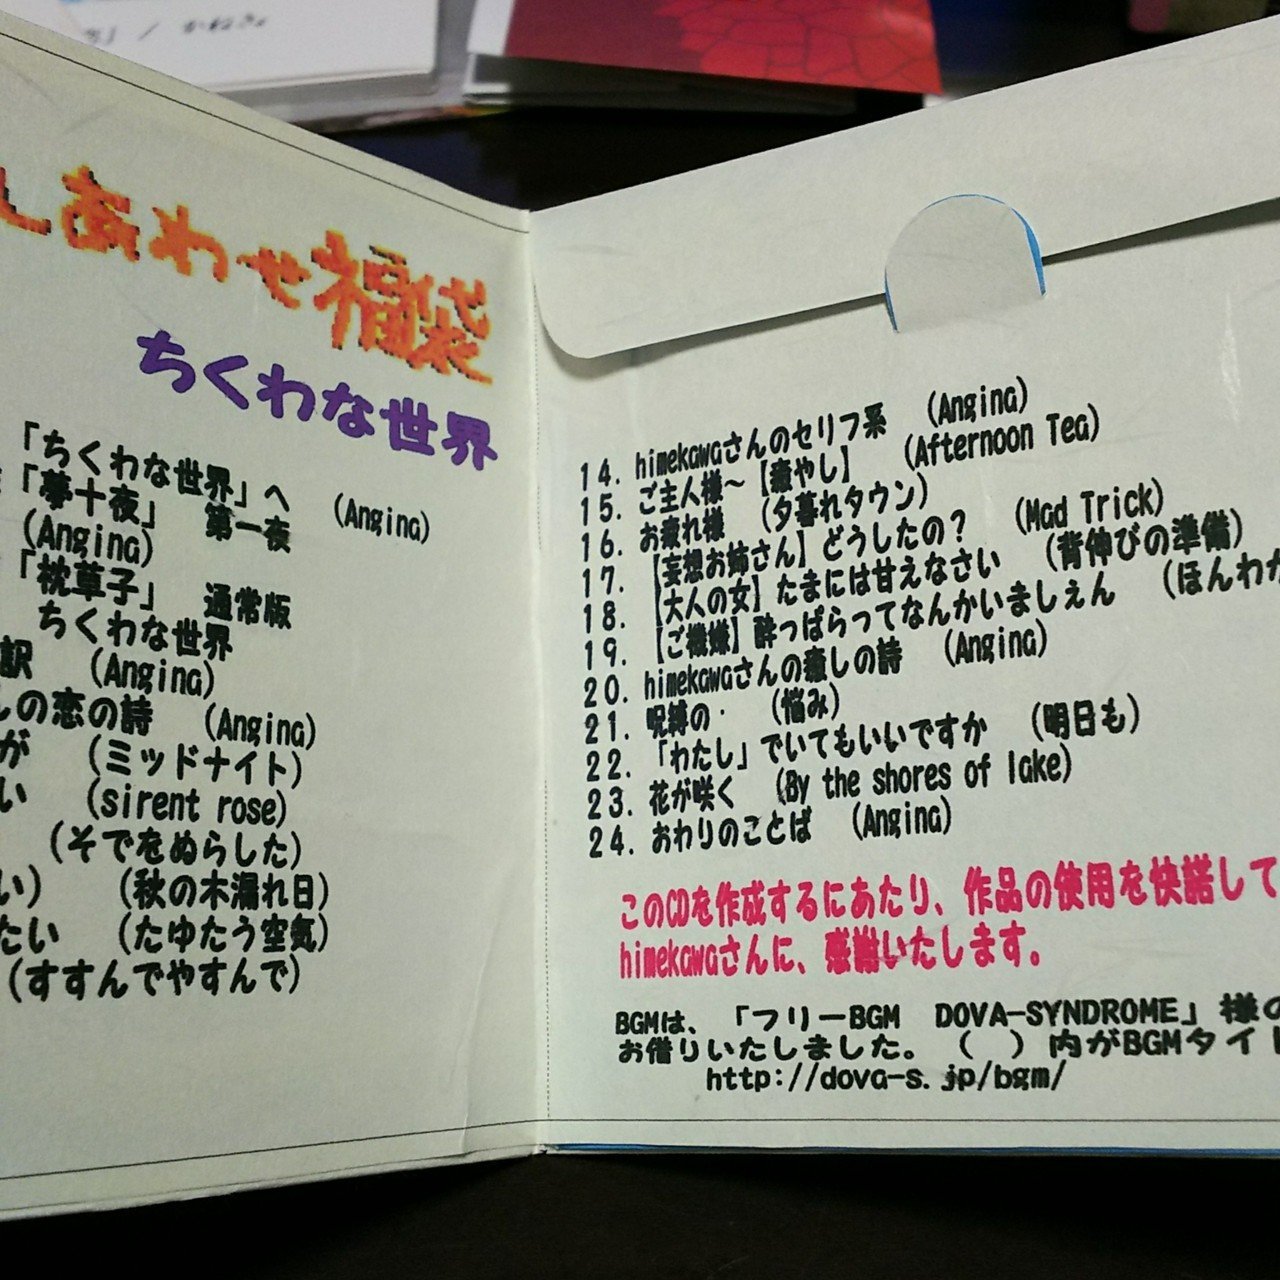 しあわせ福袋
ちくわな世界
「ちくわな世界」へ (Angina)
「夢十夜」 第一夜
(Angina)
「枕草子」 通常版
ちくわな世界
訳 (Angina)
しの恋の詩 (Angina)
が (ミッドナイト)
い (sirent rose)
(そでをぬらした)
い) (秋の木漏れ日)
たい (たゆたう空気)
(すすんでやすんで)
14. himekawaさんのセリフ系 (Angina)
15. ご主人様～【癒やし】 (Afternoon Tea)
16. お疲れ様 (夕暮れタウン)
17. 【妄想お姉さん】どうしたの？ (Mad Trick)
18. 【大人の女】たまには甘えなさい (背伸びの準備)
19. 【ご機嫌】酔っぱらってなんかいましぇん (ほんわか
20. himekawaさんの癒しの詩 (Angina)
21. 呪縛の・ (悩み)
22. 「わたし」でいてもいいですか (明日も)
23. 花が咲く (By the shores of lake)
24. おわりのことば (Angina)
このCDを作成するにあたり、作品の使用を快諾して
himekawaさんに、感謝いたします。
BGMは、「フリーBGM DOVA-SYNDROME」様の
お借りいたしました。( )内がBGMタイト
http://dova-s.jp/bgm/